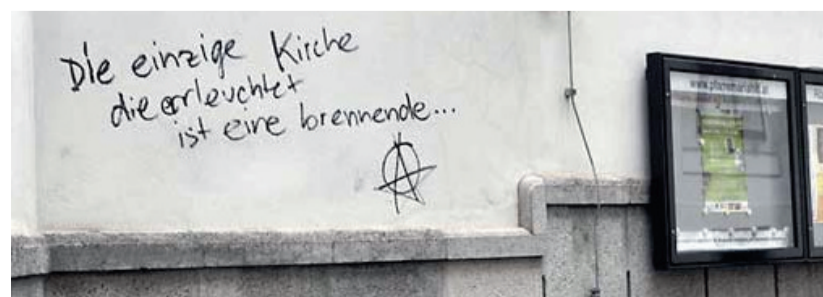 Die einzige Kirche
die erleuchtet
ist eine brennende...